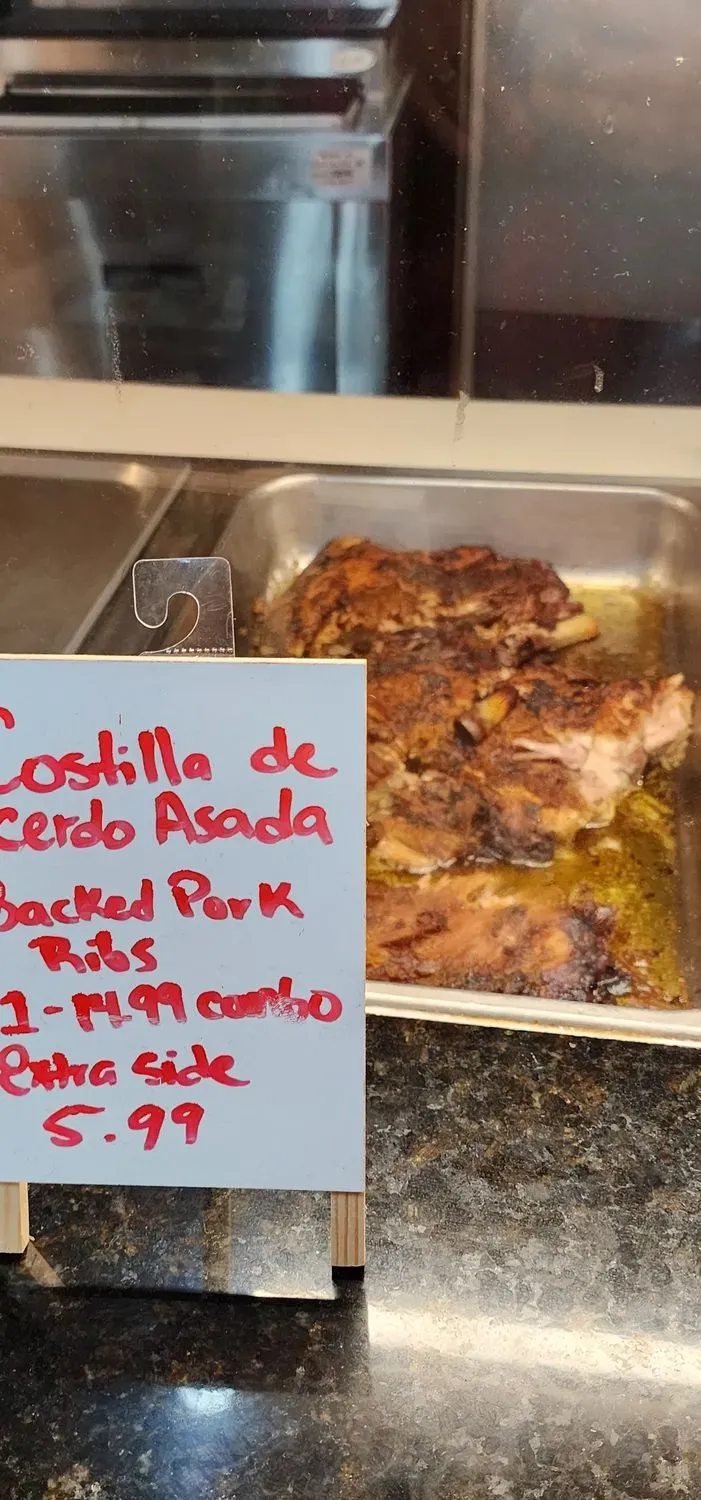 Costilla de
cerdo Asada
Backed Pork
Ribs
1-14.99 combo
extra side
5.99